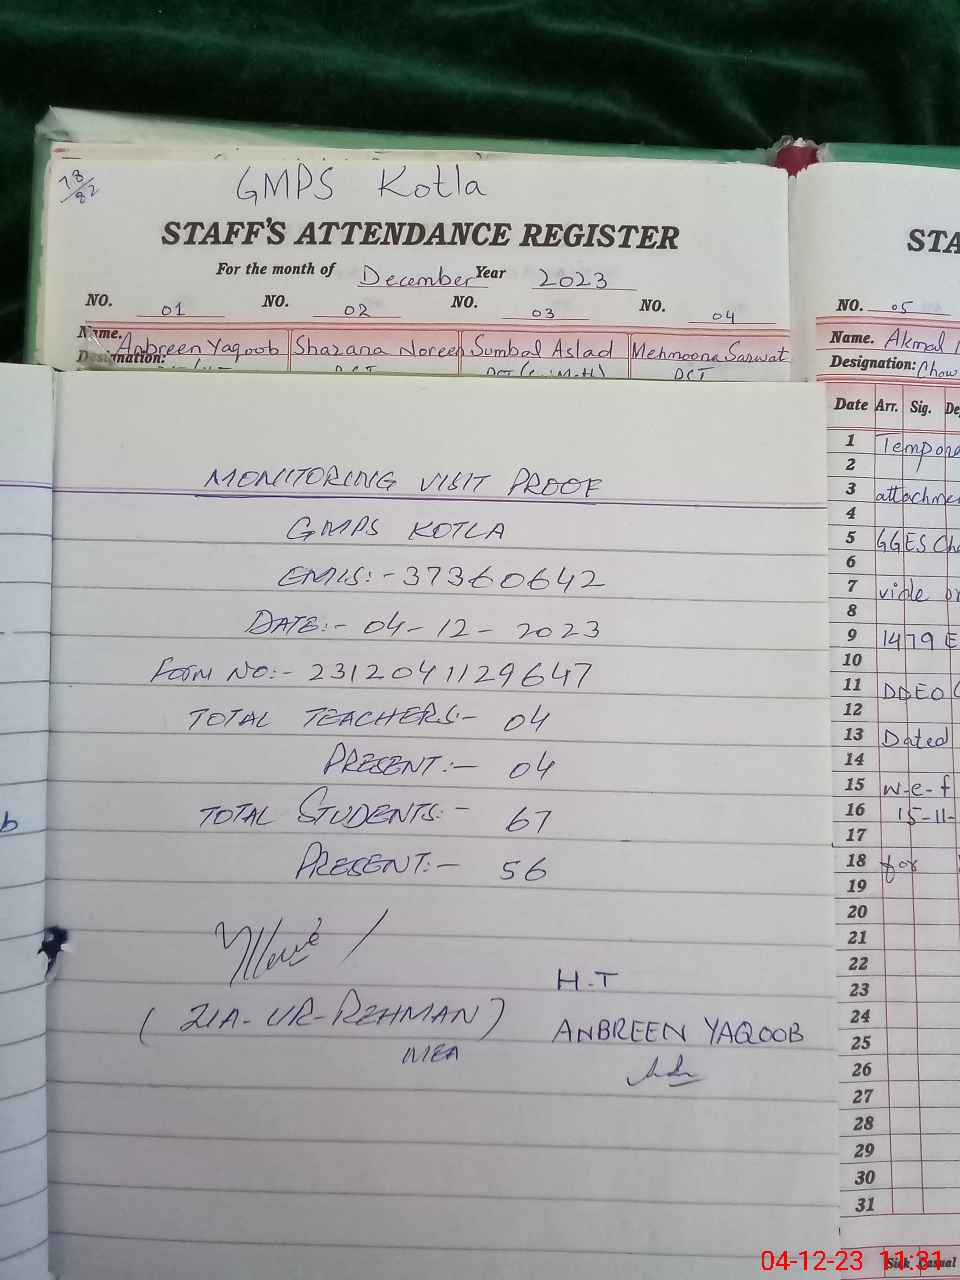 78/82
GMPS Kotla
STAFF'S ATTENDANCE REGISTER
For the month of December Year 2023
NO. 01 NO. 02 NO. 03 NO. 04
Name. Anbreen Yaqoob Shazana Noreen Sumbal Aslad Mehmoona Sarwat
Designation: PST
MONITORING VISIT PROOF
GMPS KOTLA
EMIS:-37360642
DATE:- 04-12-2023
Form No:- 2312041129647
TOTAL TEACHERS:- 04
PRESENT:- 04
TOTAL STUDENTS:- 67
PRESENT:- 56
(ZIA-UR-REHMAN)
MEA
H.T
ANBREEN YAQOOB
b
STA
NO. 05
Name. Akmal
Designation: Chow
Date Arr. Sig. De
1 Tempora
2
3 attachmen
4
5 GGES Cha
6
7 vide or
8
9 1479 E
10
11 DDEO
12
13 Dated
14
15 w-e-f
16 15-11-
17
18 for
19
20
21
22
23
24
25
26
27
28
29
30
31
Sick Casual
04-12-23 11:31